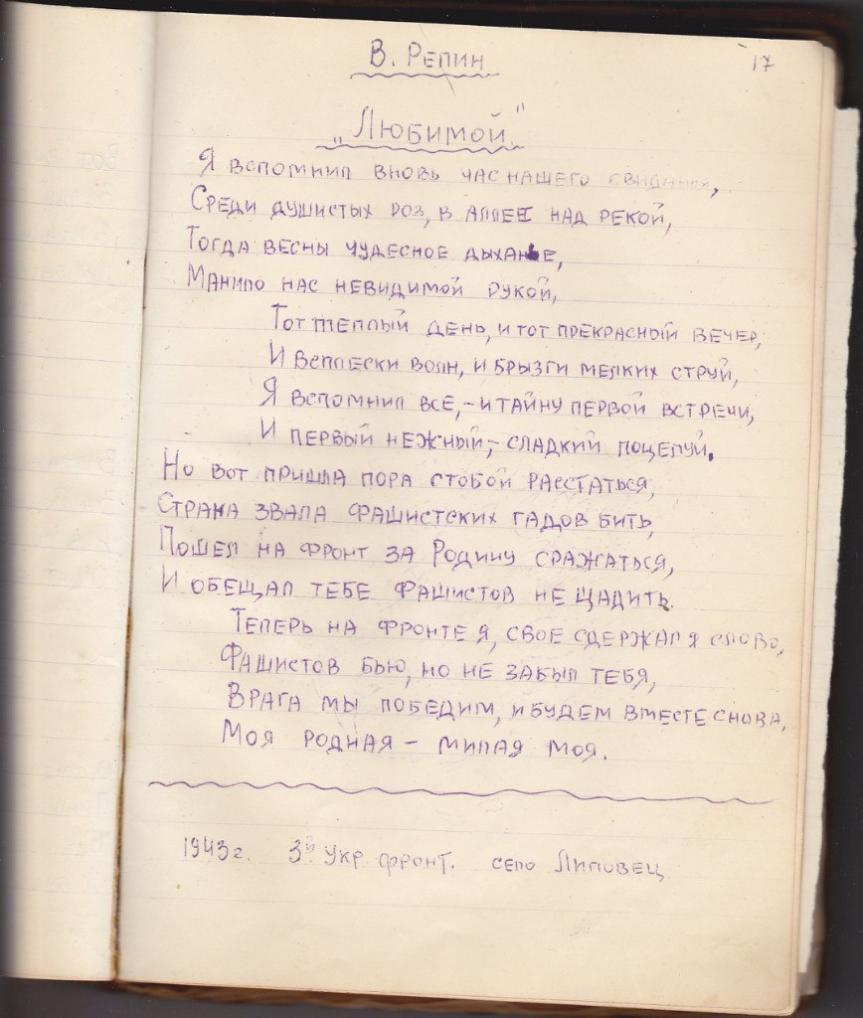 В. Репин
17
„Любимой"
Я вспомнил вновь час нашего свиданья,
Среди душистых роз, в аллее над рекой,
Тогда весны чудесное дыханье,
Манило нас невидимой рукой,
Тот теплый день, и тот прекрасный вечер,
И всплески волн, и брызги мелких струй,
Я вспомнил все,- и тайну первой встречи,
И первый нежный,- сладкий поцелуй.
Но вот пришла пора стобой расстаться,
Страна звала фашистских гадов бить,
Пошел на фронт за Родину сражаться,
И обещал тебе фашистов не щадить.
Теперь на фронте я, свое сдержал я слово,
Фашистов бью, но не забыл тебя,
Врага мы победим, и будем вместе снова,
Моя родная - милая моя.
1943 г. 3й Укр. фронт. село Липовец